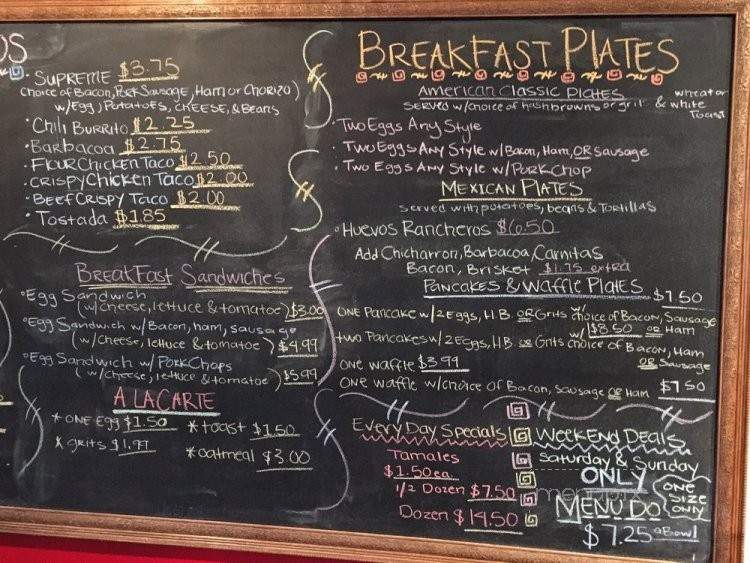 OS
· Supreme $3.75
Choice of Bacon, Pork Sausage, Ham or Chorizo)
w/Egg, Potatoes, Cheese, & Beans
· Chili Burrito $2.25
· Barbacoa $2.75
· Flour Chicken Taco $2.50
· Crispy Chicken Taco $2.00
· Beef Crispy Taco $2.00
· Tostada $1.85
Breakfast Sandwiches
°Egg Sandwich
(w/cheese, lettuce & tomatoe) $3.00
°Egg Sandwich w/Bacon, ham, sausage
(w/cheese, lettuce & tomatoe) $4.99
°Egg Sandwich w/Pork Chops
(w/cheese, lettuce & tomatoe) $5.99
A LA CARTE
* ONE Egg $1.50
* toast $1.50
* grits $1.99
* oatmeal $3.00
Breakfast Plates
American Classic Plates
served w/choice of hashbrowns or grits & wheat or white Toast
· Two Eggs Any Style
· Two Eggs Any Style w/Bacon, Ham, OR Sausage
· Two Eggs Any Style w/Pork Chop
Mexican Plates
served with potatoes, beans & Tortillas
· Huevos Rancheros $6.50
Add Chicharron, Barbacoa, Carnitas
Bacon, Brisket $1.75 extra
Pancakes & Waffle Plates
$7.50
ONE Pancake w/2Eggs, H.B. OR Grits choice of Bacon, Sausage
w/ $8.50 OR Ham
two Pancakes w/2Eggs, H.B. OR Grits choice of Bacon, Ham
OR Sausage
ONE waffle $3.99
ONE waffle w/choice of Bacon, Sausage OR Ham $7.50
Every Day Specials
Tamales
$1.50 ea.
1/2 Dozen $7.50
Dozen $14.50
Weekend Deals
Saturday & Sunday
ONLY
MENUDO
ONE
Size
ONLY
$7.25 a Bowl